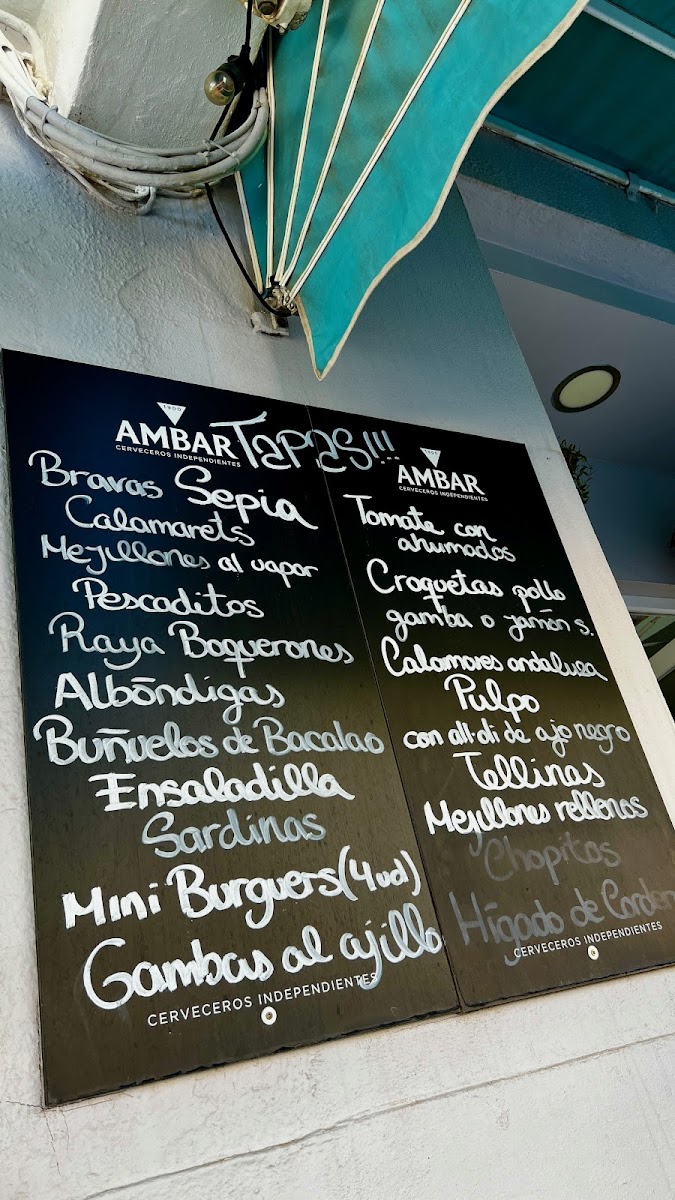 1900
AMBAR
CERVECEROS INDEPENDIENTES
TAPAS!!!
Bravas Sepia
Calamarets
Mejillones al vapor
Pescaditos
Raya Boquerones
Albóndigas
Buñuelos de Bacalao
Ensaladilla
Sardinas
Mini Burguers (4 ud)
Gambas al ajillo
CERVECEROS INDEPENDIENTES
AMBAR
CERVECEROS INDEPENDIENTES
Tomate con
ahumados
Croquetas pollo
gamba o jamón s.
Calamares andaluza
Pulpo
con all·oli de ajo negro
Tellinas
Mejillones rellenos
Chopitos
Hígado de Corder
CERVECEROS INDEPENDIENTES